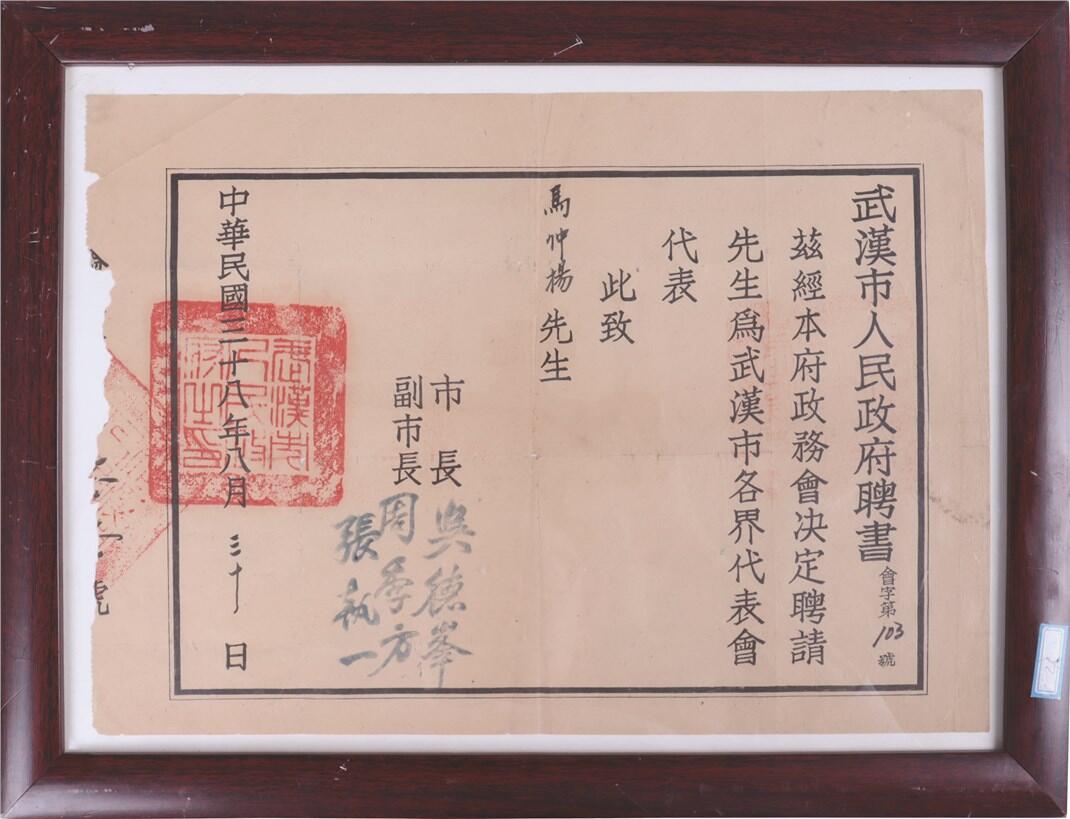 武漢市人民政府聘書
會字第103號
茲經本府政務會決定聘請
先生爲武漢市各界代表會
代表
此致
馬仲楊先生
市長 吳德峯
副市長 周季方
張執一
中華民國三十八年八月三十日
武漢市人民政府之印
號